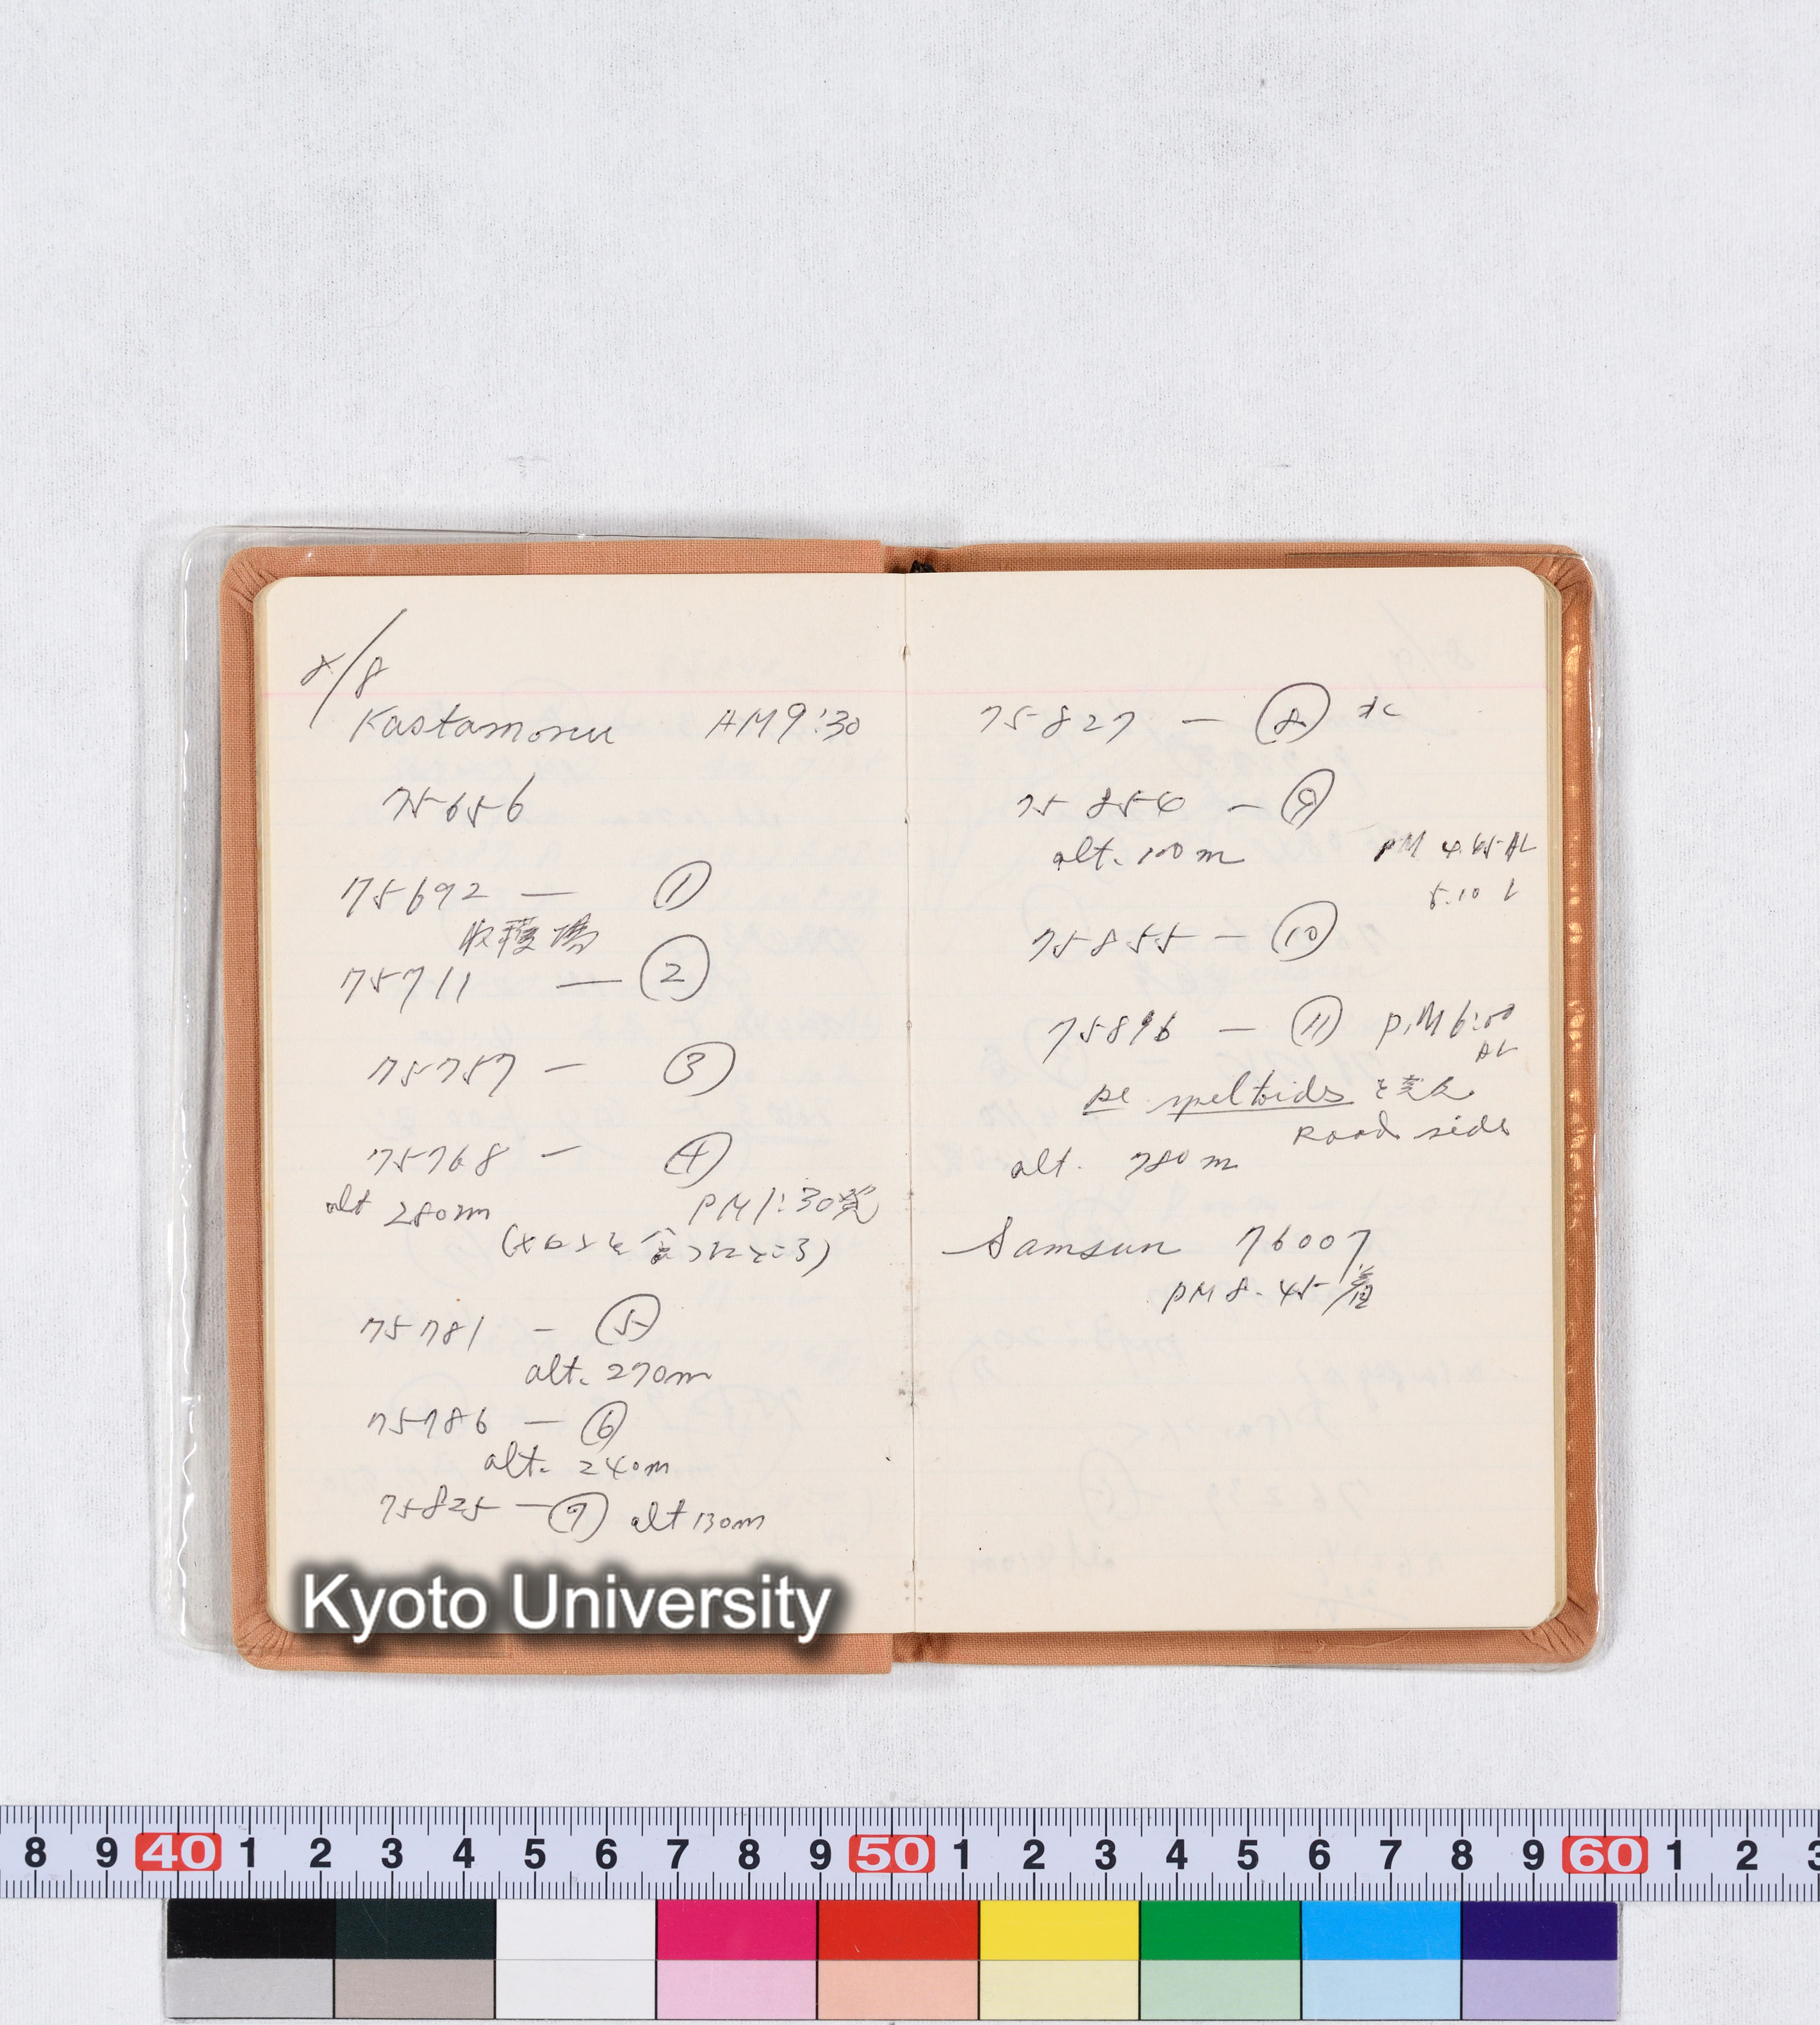 8/8
Kastamonu AM 9:30
75656
75692 — ①
収穫場
75711 — ②
75757 — ③
75768 — ④
alt 280m PM 1:30発
(メロンを食ったところ)
75781 — ⑤
alt. 270m
75786 — ⑥
alt. 240m
75825 — ⑦ alt 130m
Kyoto University
75827 — ⑧
75854 — ⑨
alt. 100m PM 4.45 AL
5.10 L
75855 — ⑩
75896 — ⑪ P.M 6:00
AL
speltoides と
Road side
alt. 780m
Samsun 76007
PM 8.45 着
8 9 40 1 2 3 4 5 6 7 8 9 50 1 2 3 4 5 6 7 8 9 60 1 2 3